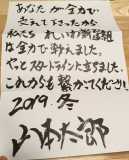 あなたが全力で
支えて下さったから
私たち れいわ新選組
は全力で闘えました。
やっとスタートラインに立ちました。
これからも繋がってください。
2019. 冬
山本太郎